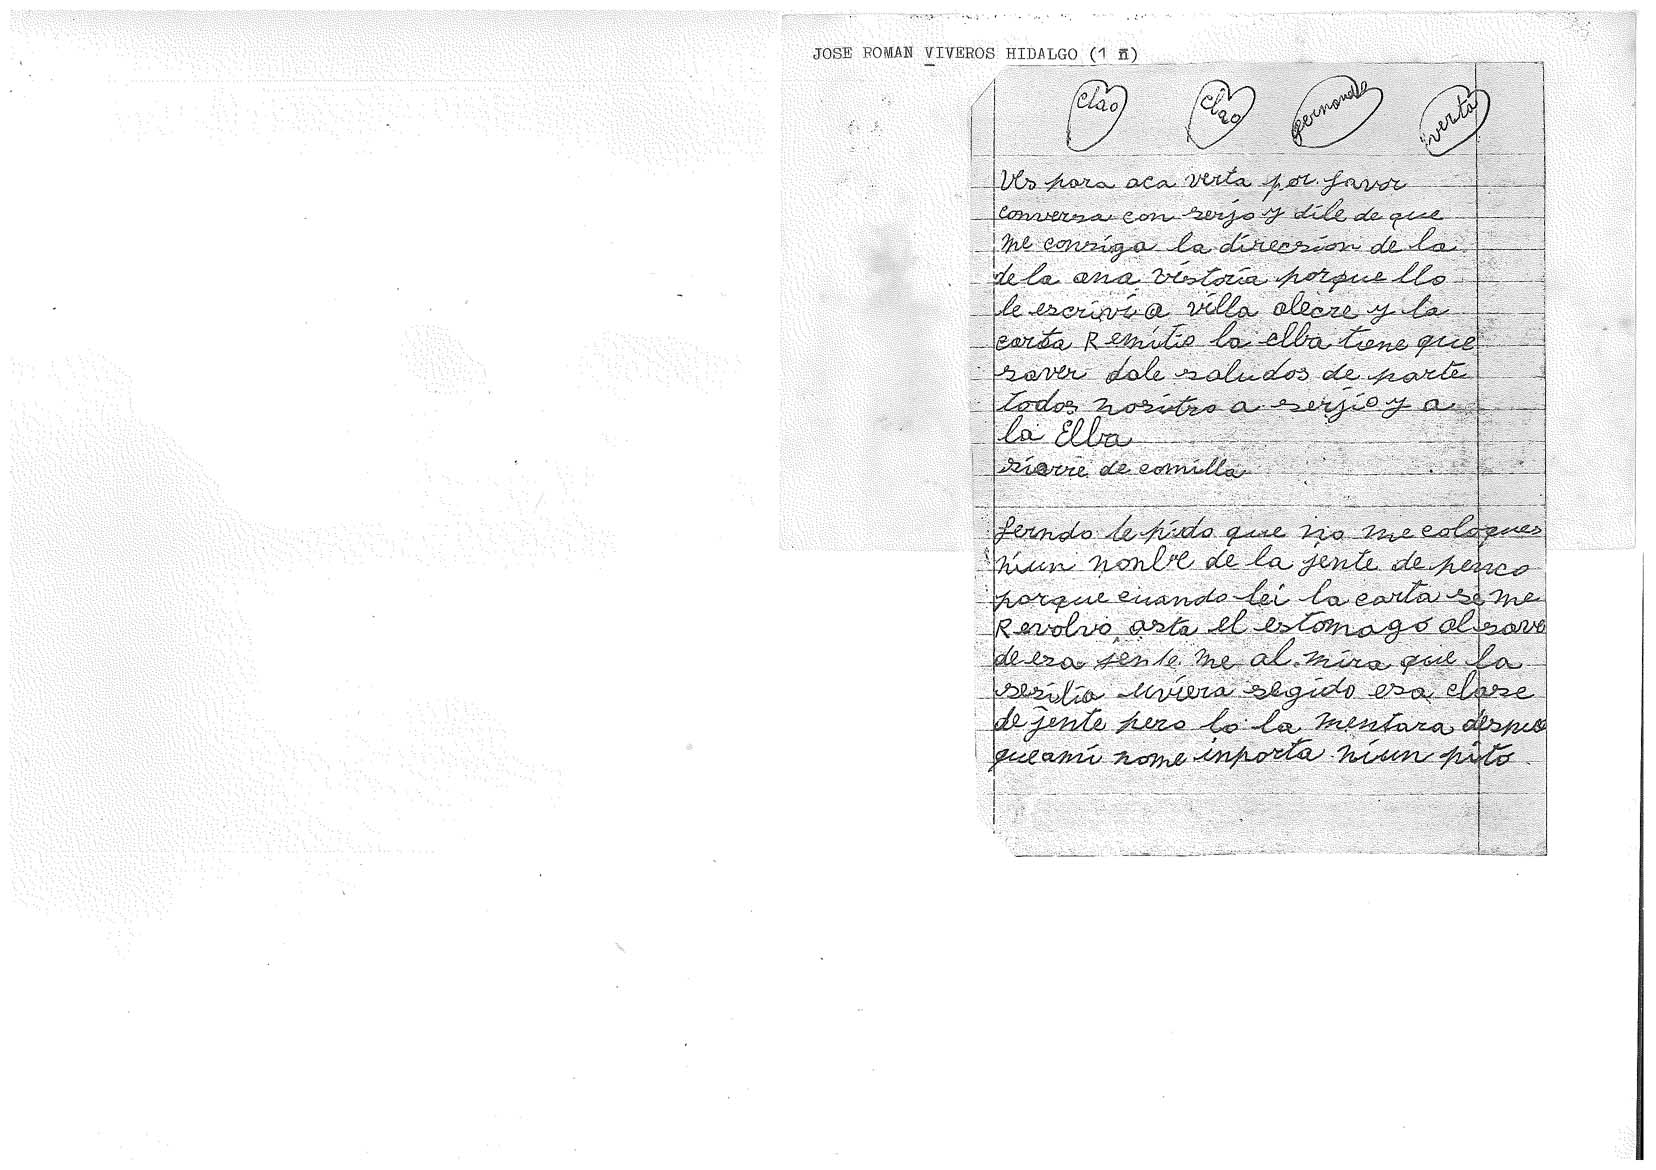 JOSE ROMAN VIVEROS HIDALGO (1 )
Chao
Chao
fernando
verta
para aca verta por favor
conversa con serjo y dile de que
me consiga la direcsion de la
de la ana vistoria porque llo
le escrivi a villa alecre y la
carta Remitio la elba tiene que
saver dale saludos de parte
todos nositro a serjio y a
la Elba
siarre de comilla
ferndo te pido que no me coloques
niun nonbre de la jente de penco
porque cuando lei la carta se me
Revolvo asta el estomago al save
de esa jente me al mira que la
sesilia uviera segido esa clase
de jente pero lo la mentara despue
que ami nome inporta niun pito